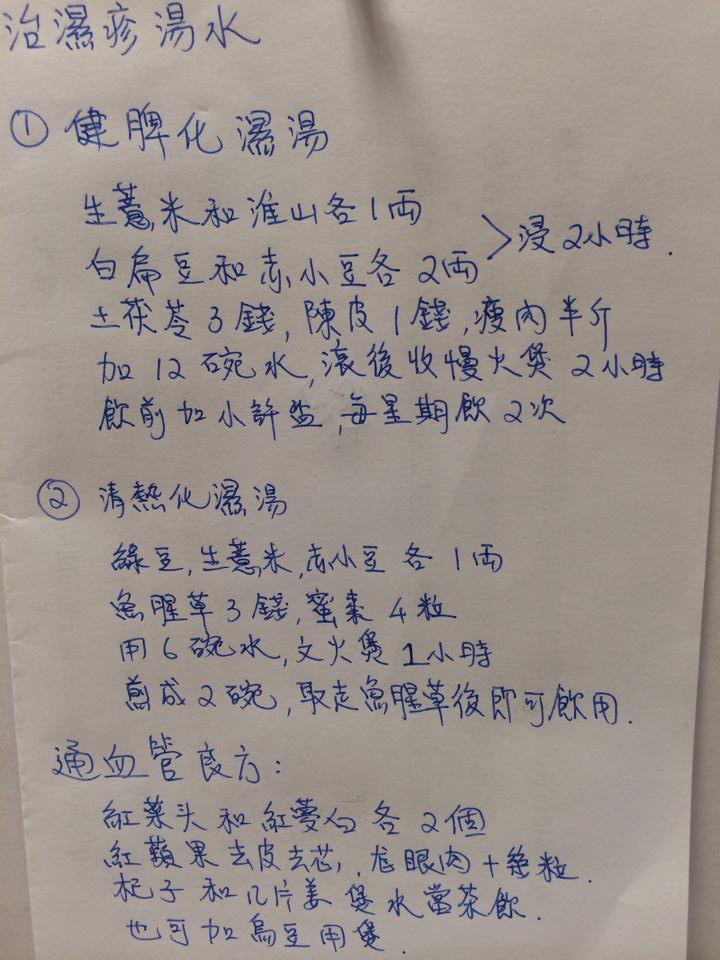 治濕疹湯水
① 健脾化濕湯
生薏米和淮山各1両
白扁豆和赤小豆各2両 > 浸2小時.
土茯苓3錢, 陳皮1錢, 瘦肉半斤
加12碗水, 滾後收慢火煲2小時
飲前加小許盐, 每星期飲2次
② 清熱化濕湯
綠豆, 生薏米, 赤小豆各1両
魚腥草3錢, 蜜棗4粒
用6碗水, 文火煲1小時
煎成2碗, 取走魚腥草後即可飲用.
通血管良方:
紅菜头和紅蘿白各2個
紅蘋果去皮去芯, 龙眼肉十幾粒.
杞子和几片姜煲水當茶飲.
也可加烏豆用煲.